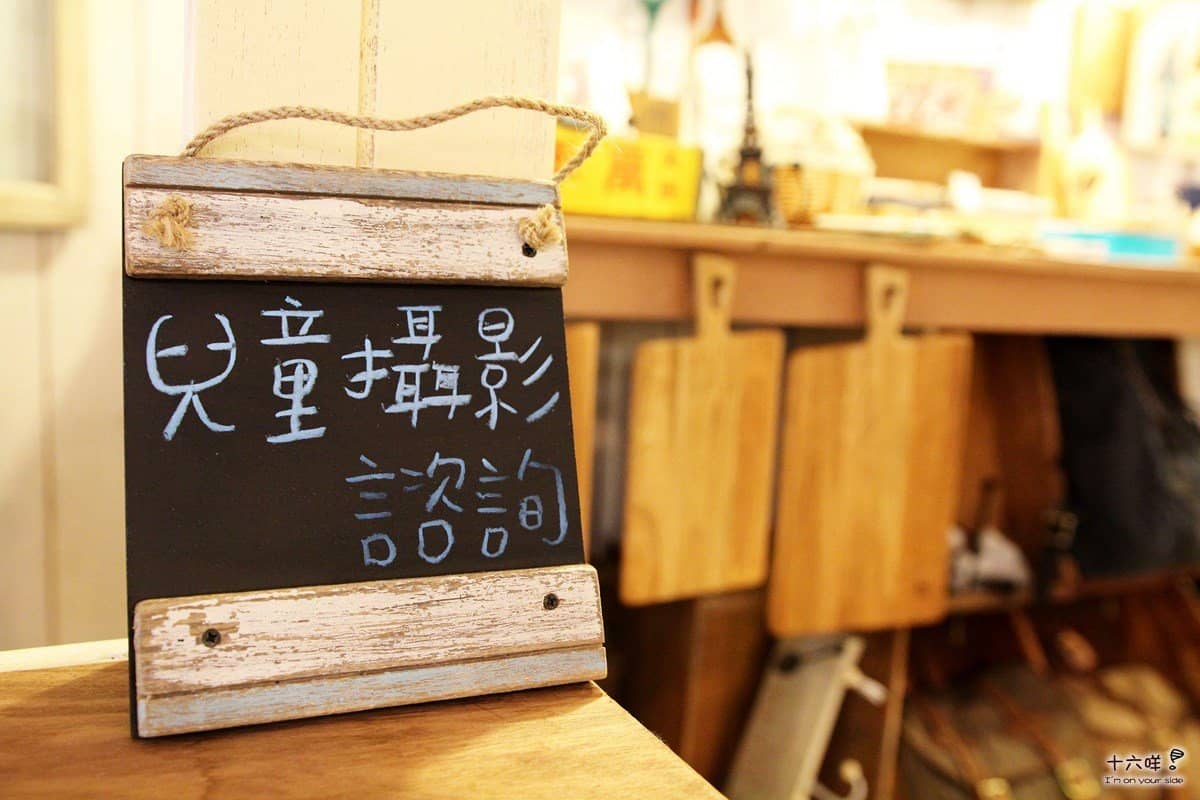 兒童攝影
諮詢
萬
十六咩
I'm on your side